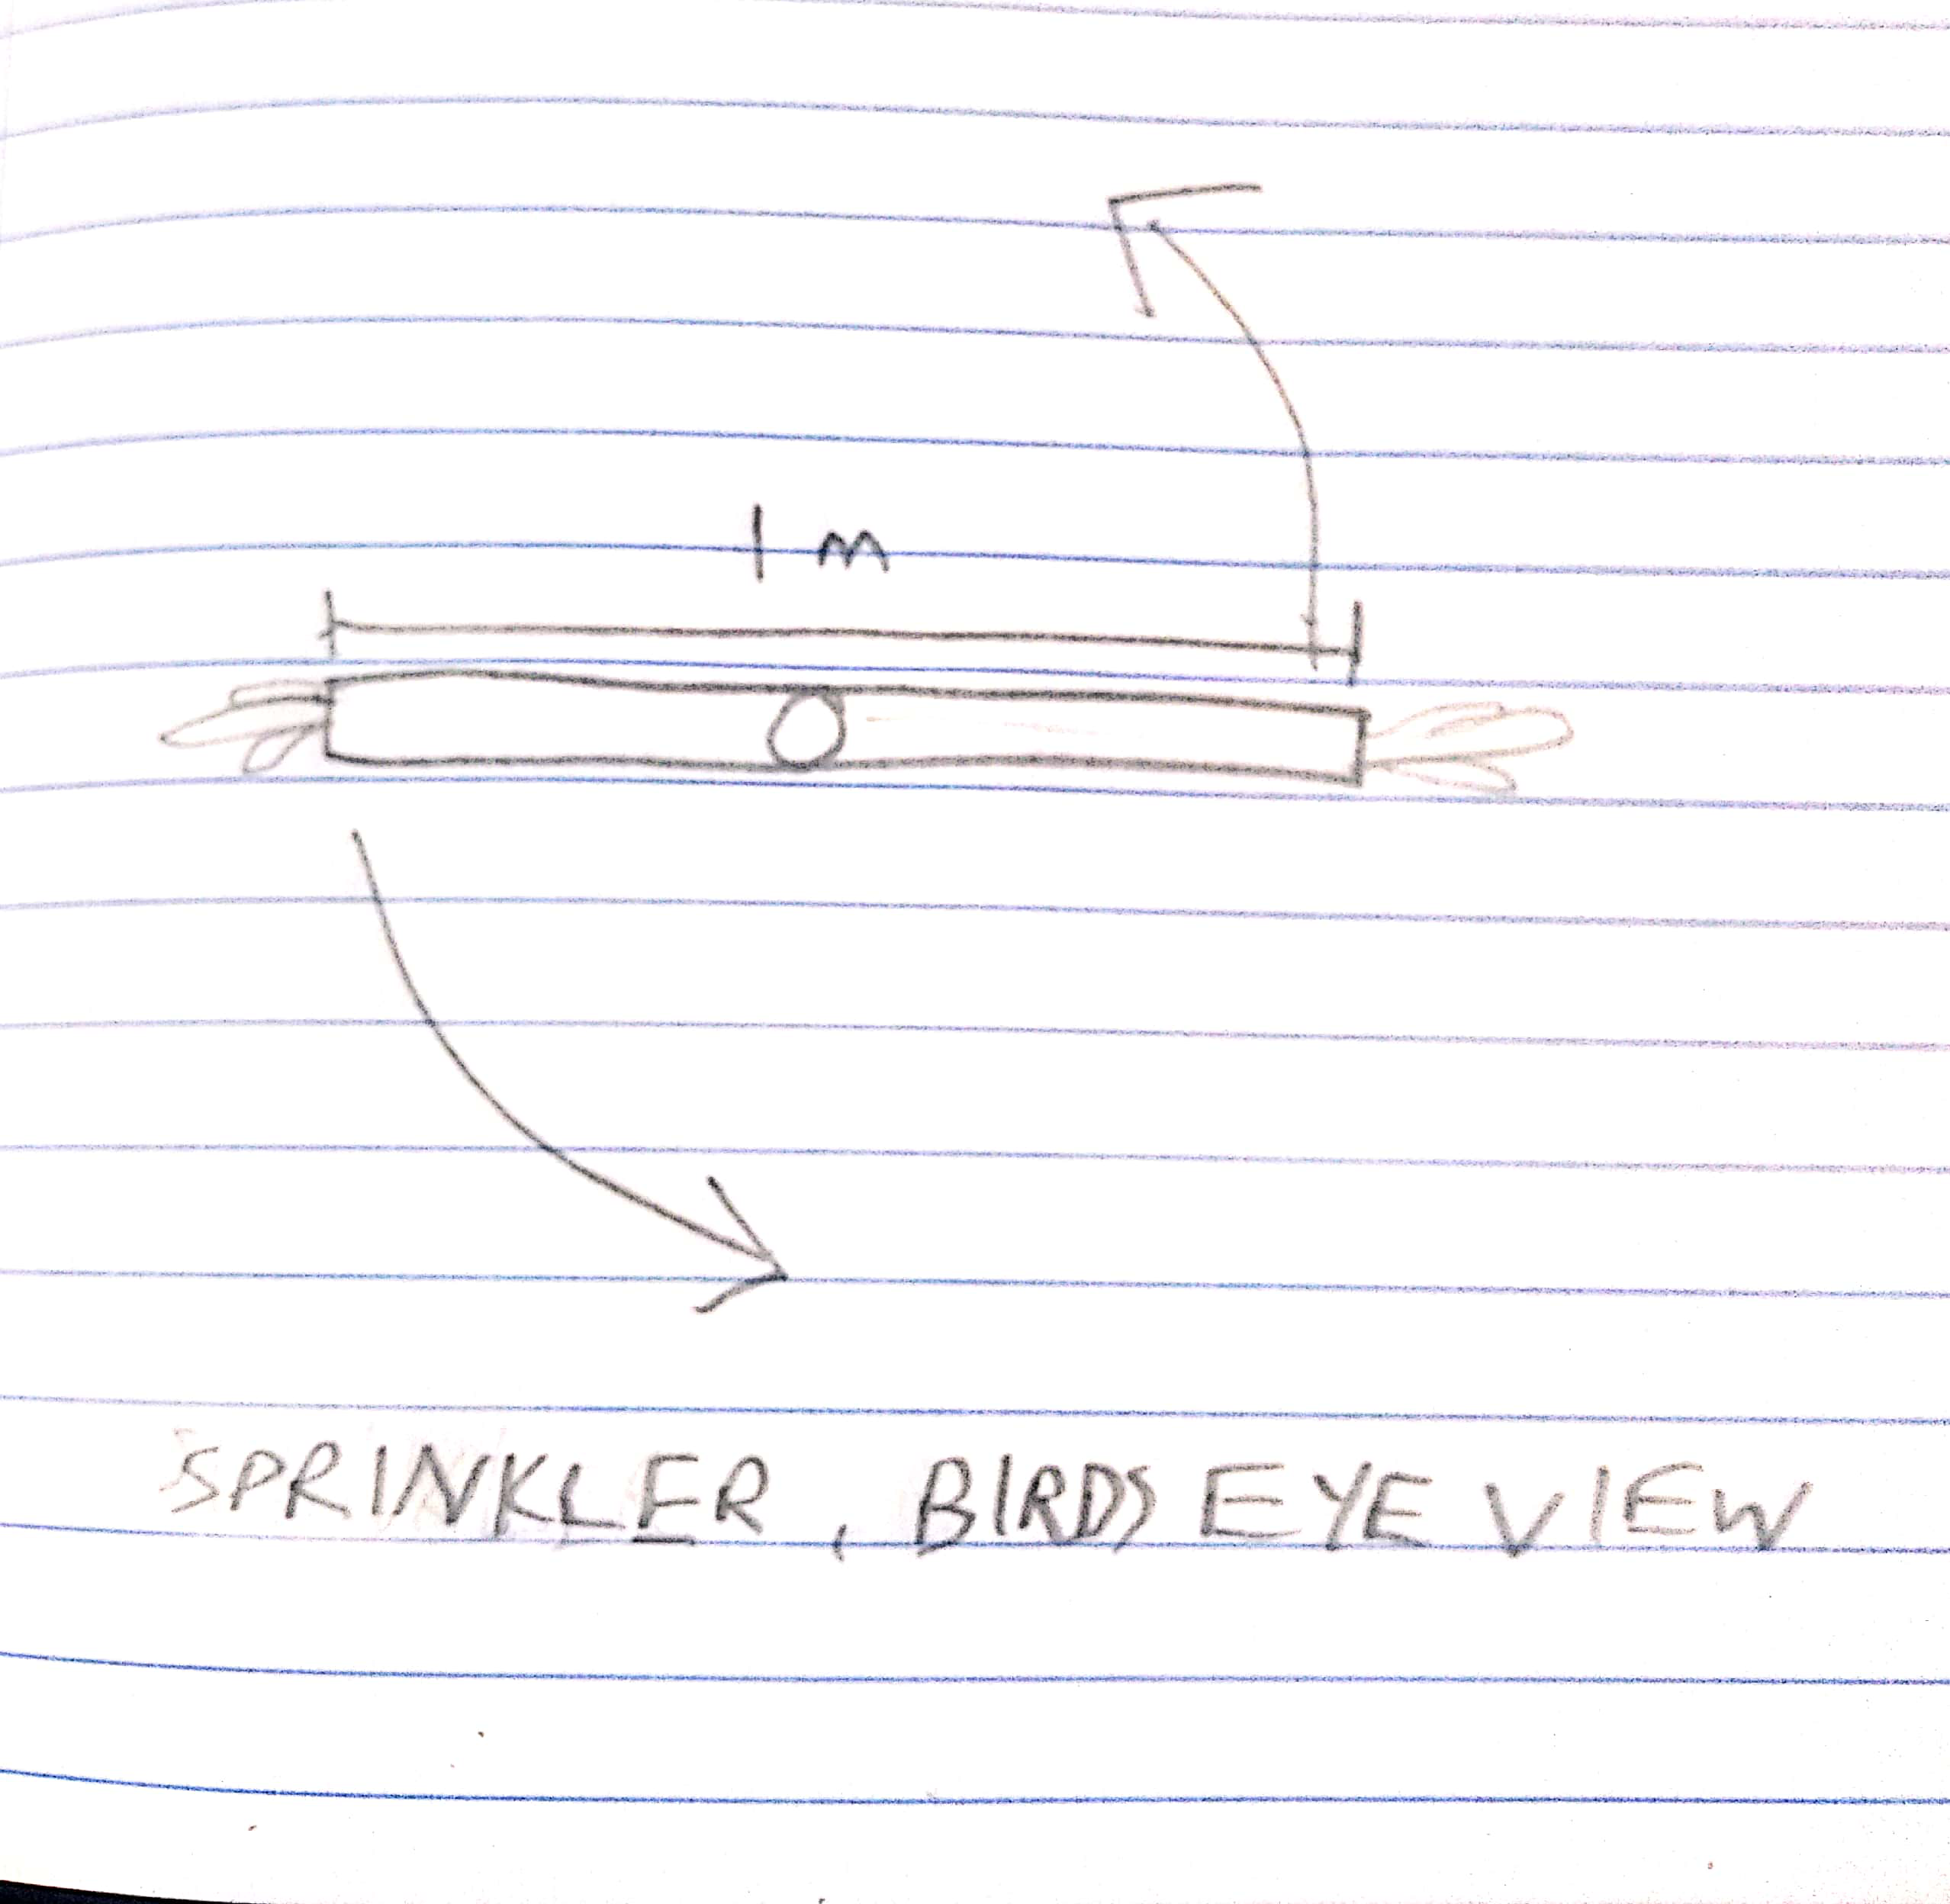 1 m
SPRINKLER, BIRDS EYE VIEW